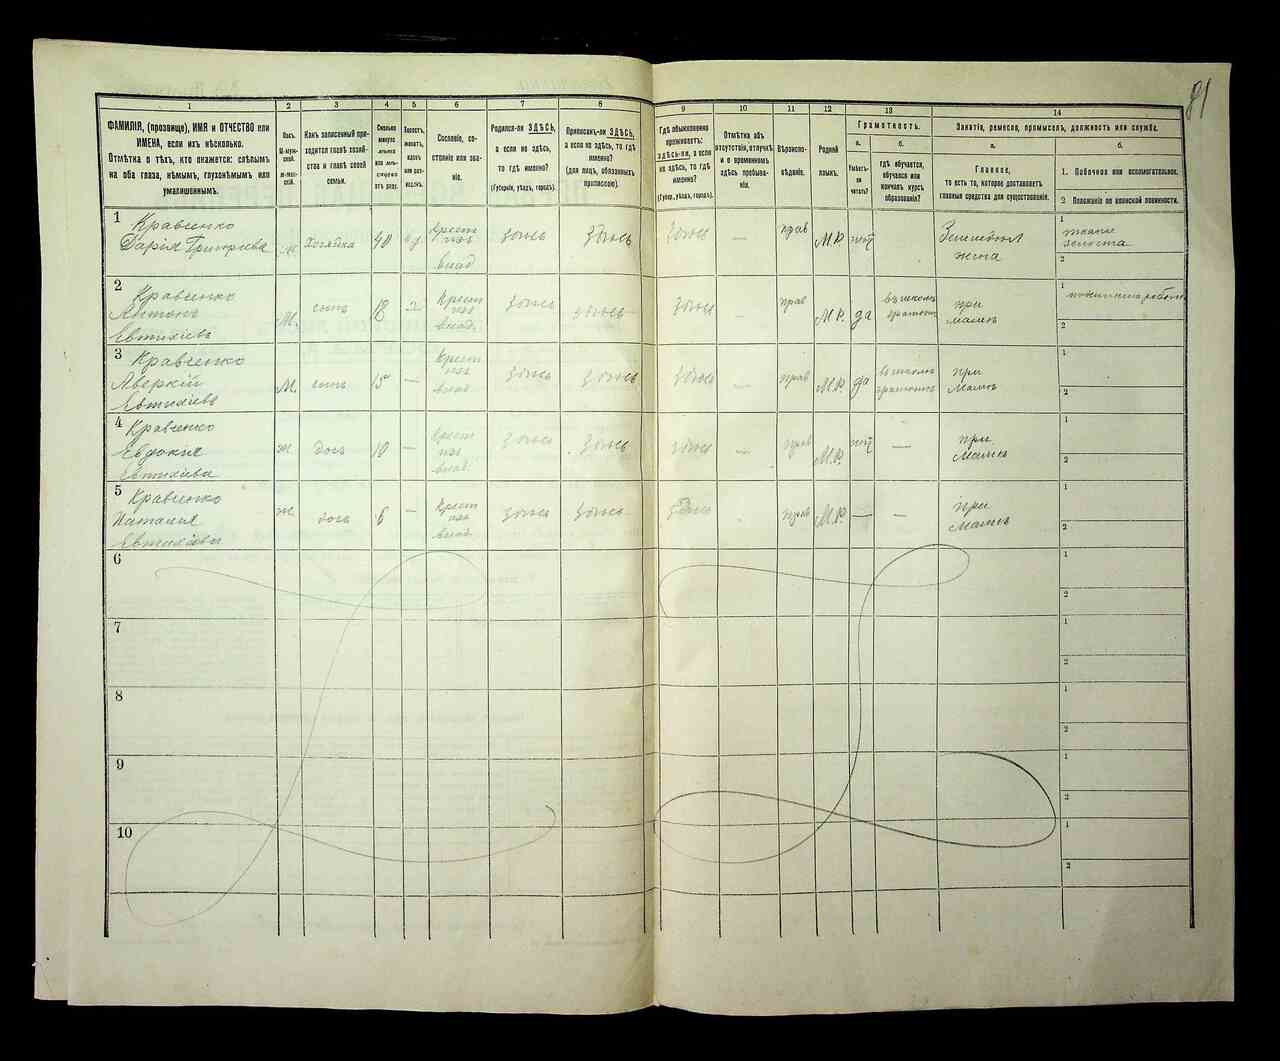 81
1
2
3
4
5
6
7
8
9
10
11
12
13
14
ФАМИЛІЯ, (прозвище), ИМЯ и ОТЧЕСТВО или
ИМЕНА, если ихъ нѣсколько.
Отмѣтка о тѣхъ, кто окажется: слѣпымъ
на оба глаза, нѣмымъ, глухонѣмымъ или
умалишеннымъ.
Полъ.
М-мужской.
Ж-женскій.
Какъ записанный приходится
главѣ хозяйства и главѣ своей
семьи.
Сколько
минуло
лѣтъ
отъ роду.
Сословіе, состояніе
или званіе.
Родился-ли ЗДѢСЬ,
а если не здѣсь,
то гдѣ именно?
(Губернія, уѣздъ, городъ).
Приписанъ-ли ЗДѢСЬ,
а если не здѣсь, то гдѣ
именно?
(для лицъ, обязанныхъ
припискою).
Гдѣ обыкновенно
проживаетъ:
здѣсь-ли, а если
не здѣсь, то гдѣ
именно?
(Губерн., уѣздъ, городъ).
Отмѣтка объ
отсутствіи, отлучкѣ
и о временномъ
здѣсь пребываніи.
Вѣроисповѣданіе.
Родной
языкъ.
Грамотность.
а.
Умѣетъ-ли
читать?
б.
гдѣ обучается,
обучался или
кончилъ курсъ
образованія?
Занятіе, ремесло, промыселъ, должность или служба.
а.
Главное,
то есть то, которое доставляетъ
главныя средства для существованія.
б.
1. Побочное или вспомогательное.
2 Положеніе по воинской повинности.
1
Кравченко
Дарія Григріева
Хозяйка
40
Крест
изъ
влад
здѣсь
здѣсь
здѣсь
—
прав
М.Р.
нѣт
жена
1
2
2
Кравченко
Антонъ
Евтихіевъ
М.
сынъ
18
Крест
изъ
влад.
здѣсь
здѣсь
здѣсь
—
прав
М.Р.
да
при
мамѣ
1
2
3
Кравченко
Аверкій
Евтихіевъ
М.
сынъ
15
—
Крест
изъ
влад.
здѣсь
здѣсь
здѣсь
—
прав
М.Р.
да
при
Мамѣ
1
2
4
Кравченко
Евдокія
Евтихіева
Ж.
дочь
10
—
Крест
изъ
влад.
здѣсь
здѣсь
здѣсь
—
прав
М.Р.
нѣт
—
при
Мамѣ
1
2
5
Кравченко
Наталія
Евтихіева
Ж.
дочь
6
—
Крест
изъ
влад.
здѣсь
здѣсь
здѣсь
прав
М.Р.
—
—
при
Мамѣ
1
2
6
1
2
7
1
2
8
1
2
9
1
2
10
1
2